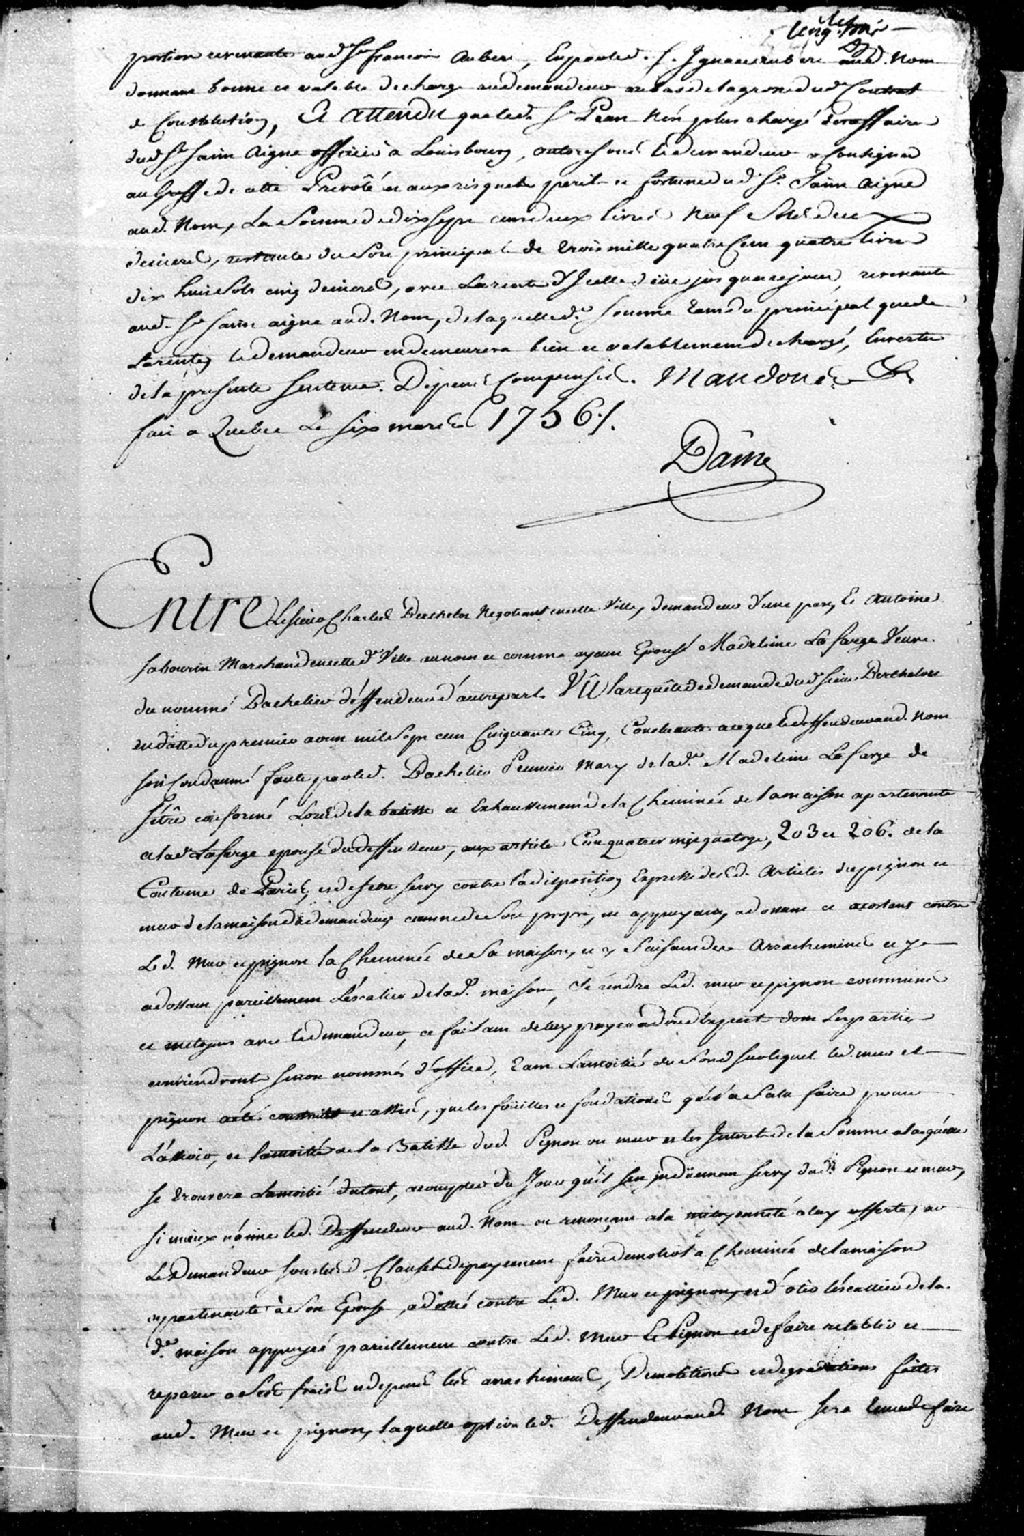 portion revenante aud. Sr. francois Aubert, Enponled. S. Ignace aubert aud. Nom
donnant bonne et valable decharge audemandeur au bas de lagrosse dud. Contrat
de Constitution, Et attendu que led. Sr. Pean n'est plus chargé des affaires
dud. Sr. Saint Aigne officier à Louisbourg, autorisons le demandeur a Consigner
au Greffe de cette Prevôté et aux risques perils et fortune dud. Sr. Saint Aigne
aud. Nom, La Somme de dix sept cent deux livres Neuf Sols deux
deniers, restante du Sort principal de trois mille quatre Cent quatre livres
dix huit sols cinq deniers, avec La rente d'Icelle düe jusqua ce jour, revenante
aud. Sr. Saint aigne aud. Nom, de laquelle de. Somme tant du principal que de
Larente, le demandeur en demeurera bien et valablement dechargé, En vertu
de la presente Sentence. Dépens Compensés. Mandons &
fait a Quebec Le Six mars 1756./.
Daine
Entre Lesieur Charles Berthelot Negotiant en cette Ville, demandeur d'une part, Et Antoine
Sabourin Marchand en cette de. Ville au nom et comme ayant Epousé Madeleine La farge Veuve
du nommé Bachelier déffendeur d'autre part. Vû la requête de demande dud. Sieur Berthelot
en datte du premier aoust mil Sept cent Cinquante Cinq, Tendante a ce que le deffendeur aud. Nom
soit Condamné faute par led. Bachelier Premier Mary de lade. Madeleine Lafarge de
s'être conformé Lors de la batisse et Exhaussement de la Cheminée de la maison apartenante
a lade. Lafarge epouse du deffendeur, aux articles Cent quatre vingt quatorze, 203 et 206. de la
Coutume de Paris, et de s'être servy contre la disposition Expresse desd. Articles du pignon et
mur de la maison du demandeur comme de Son propre, en appuyant, adossant et acostant contre
Led. Mur et pignon la Cheminée de Sa maison, et y faisant des Arrachemens et y
adossant pareillement L'escalier de lade. maison, de rendre Led. mur et pignon commun
et mitoyen avec le demandeur, ce faisant de luy payer à dire d'experts dont les parties
conviendront sinon nommés d'office, tant La moitié du fond sur lequel led. mur et
pignon a été construit et assis, que les fouilles et fondations qu'il a fallu faire pour
L'assoir, et la moitié de la Batisse dud. Pignon ou mur et les Interets de la Somme a laquelle
se trouvera La moitié du tout, a compter du Jour qu'il s'est indûement servy dud. Pignon et mur,
si mieux n'aime led. Deffendeur aud. Nom en renonçant a la mitoyenneté a luy offerte, au
Le Demandeur sous lesd. Clauses de payement faire demolir la Cheminée de la maison
appartenante à Son Epouse, adossée contre Led. Mur et pignon, et d'oter l'escallier de la
de. maison appuyé pareillement contre Led. Mur et Pignon et de faire retablir et
reparer a Ses frais et depens les arrachemens, Demolitions et degradations faites
aud. Mur et pignon, laquelle option led. Deffendeur aud. Nom Sera tenu de faire